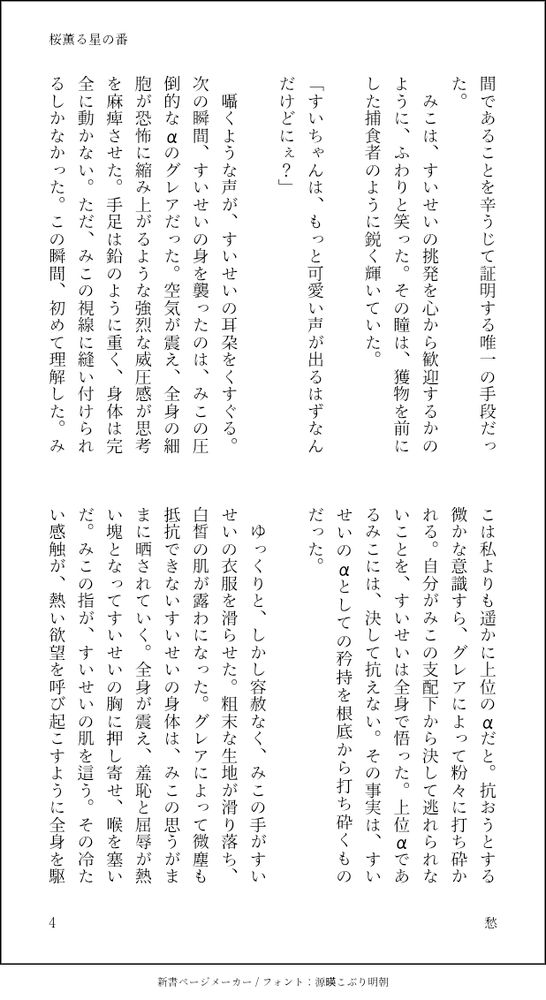 桜薫る星の番
間であることを辛うじて証明する唯一の手段だっ
た。
　みこは、すいせいの挑発を心から歓迎するかの
ように、ふわりと笑った。その瞳は、獲物を前に
した捕食者のように鋭く輝いていた。
「すいちゃんは、もっと可愛い声が出るはずなん
だけどにぇ？」
　囁くような声が、すいせいの耳朶をくすぐる。
次の瞬間、すいせいの身を襲ったのは、みこの圧
倒的なαのグレアだった。空気が震え、全身の細
胞が恐怖に縮み上がるような強烈な威圧感が思考
を麻痺させた。手足は鉛のように重く、身体は完
全に動かない。ただ、みこの視線に縫い付けられ
るしかなかった。この瞬間、初めて理解した。み
こは私よりも遥かに上位のαだと。抗おうとする
微かな意識すら、グレアによって粉々に打ち砕か
れる。自分がみこの支配下から決して逃れられな
いことを、すいせいは全身で悟った。上位αであ
るみこには、決して抗えない。その事実は、すい
せいのαとしての矜持を根底から打ち砕くもの
だった。
　ゆっくりと、しかし容赦なく、みこの手がすい
せいの衣服を滑らせた。粗末な生地が滑り落ち、
白皙の肌が露わになった。グレアによって微塵も
抵抗できないすいせいの身体は、みこの思うがま
まに晒されていく。全身が震え、羞恥と屈辱が熱
い塊となってすいせいの胸に押し寄せ、喉を塞い
だ。みこの指が、すいせいの肌を這う。その冷た
い感触が、熱い欲望を呼び起こすように全身を駆
愁
4
新書ページメーカー / フォント：源暎こぶり明朝